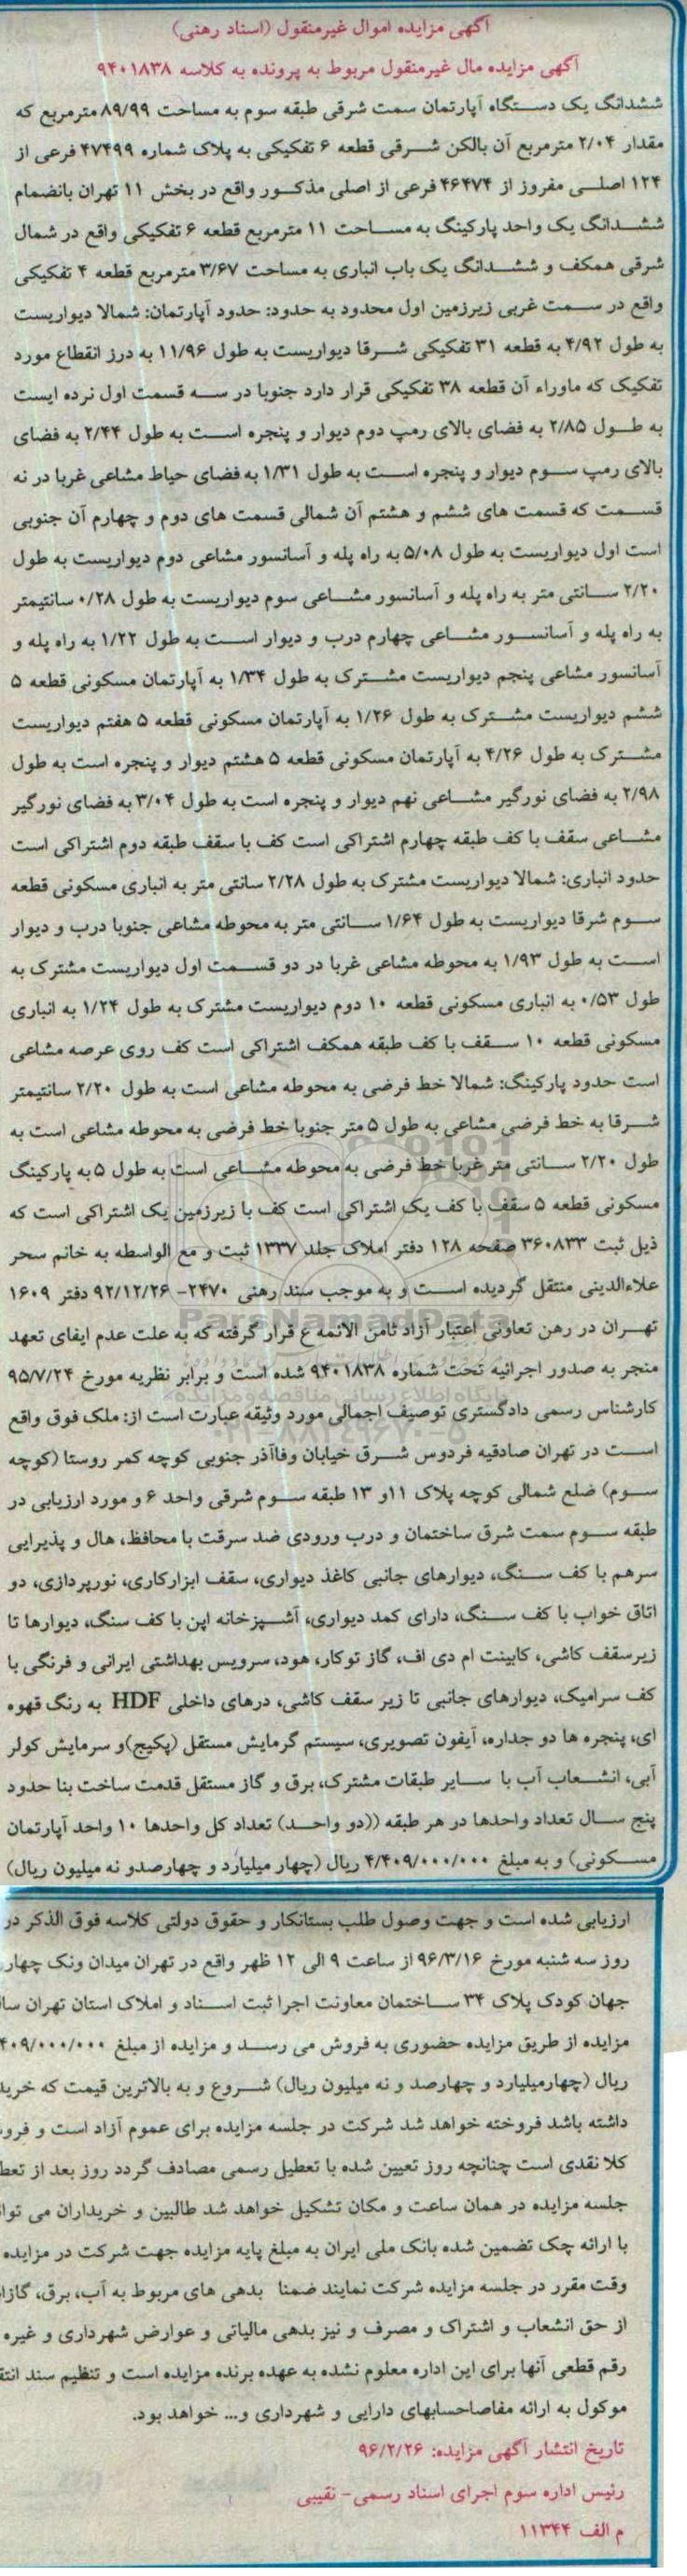 آگهی مزایده اموال غیرمنقول (اسناد رهنی)
آگهی مزایده مال غیرمنقول مربوط به پرونده به کلاسه ۹۴۰۱۸۳۸
ششدانگ یک دستگاه آپارتمان سمت شرقی طبقه سوم به مساحت ۸۹/۹۹ مترمربع که
مقدار ۲/۰۴ مترمربع آن بالکن شرقی قطعه ۶ تفکیکی به پلاک شماره ۴۷۴۹۹ فرعی از
۱۲۴ اصلی مفروز از ۴۶۴۷۴ فرعی از اصلی مذکور واقع در بخش ۱۱ تهران بانضمام
ششدانگ یک واحد پارکینگ به مساحت ۱۱ مترمربع قطعه ۶ تفکیکی واقع در شمال
شرقی همکف و ششدانگ یک باب انباری به مساحت ۳/۶۷ مترمربع قطعه ۴ تفکیکی
واقع در سمت غربی زیرزمین اول محدود به حدود: حدود آپارتمان: شمالا دیواریست
به طول ۴/۹۲ به قطعه ۳۱ تفکیکی شرقا دیواریست به طول ۱۱/۹۶ به درز انقطاع مورد
تفکیک که ماوراء آن قطعه ۳۸ تفکیکی قرار دارد جنوبا در سه قسمت اول نرده ایست
به طول ۲/۸۵ به فضای بالای رمپ دوم دیوار و پنجره است به طول ۲/۴۴ به فضای
بالای رمپ سوم دیوار و پنجره است به طول ۱/۳۱ به فضای حیاط مشاعی غربا در نه
قسمت که قسمت های ششم و هشتم آن شمالی قسمت های دوم و چهارم آن جنوبی
است اول دیواریست به طول ۵/۰۸ به راه پله و آسانسور مشاعی دوم دیواریست به طول
۲/۲۰ سانتی متر به راه پله و آسانسور مشاعی سوم دیواریست به طول ۰/۲۸ سانتیمتر
به راه پله و آسانسور مشاعی چهارم درب و دیوار است به طول ۱/۲۲ به راه پله و
آسانسور مشاعی پنجم دیواریست مشترک به طول ۱/۳۴ به آپارتمان مسکونی قطعه ۵
ششم دیواریست مشترک به طول ۱/۲۶ به آپارتمان مسکونی قطعه ۵ هفتم دیواریست
مشترک به طول ۴/۲۶ به آپارتمان مسکونی قطعه ۵ هشتم دیوار و پنجره است به طول
۲/۹۸ به فضای نورگیر مشاعی نهم دیوار و پنجره است به طول ۳/۰۴ به فضای نورگیر
مشاعی سقف با کف طبقه چهارم اشتراکی است کف با سقف طبقه دوم اشتراکی است
حدود انباری: شمالا دیواریست مشترک به طول ۲/۲۸ سانتی متر به انباری مسکونی قطعه
سوم شرقا دیواریست به طول ۱/۶۴ سانتی متر به محوطه مشاعی جنوبا درب و دیوار
است به طول ۱/۹۳ به محوطه مشاعی غربا در دو قسمت اول دیواریست مشترک به
طول ۰/۵۳ به انباری مسکونی قطعه ۱۰ دوم دیواریست مشترک به طول ۱/۲۴ به انباری
مسکونی قطعه ۱۰ سقف با کف طبقه همکف اشتراکی است کف روی عرصه مشاعی
است حدود پارکینگ: شمالا خط فرضی به محوطه مشاعی است به طول ۲/۲۰ سانتیمتر
شرقا به خط فرضی مشاعی به طول ۵ متر جنوبا خط فرضی به محوطه مشاعی است به
طول ۲/۲۰ سانتی متر غربا خط فرضی به محوطه مشاعی است به طول ۵ به پارکینگ
مسکونی قطعه ۵ سقف با کف یک اشتراکی است کف با زیرزمین یک اشتراکی است که
ذیل ثبت ۳۶۰۸۳۳ صفحه ۱۲۸ دفتر املاک جلد ۱۳۳۷ ثبت و مع الواسطه به خانم سحر
علاءالدینی منتقل گردیده است و به موجب سند رهنی ۲۴۷۰- ۹۲/۱۲/۲۶ دفتر ۱۶۰۹
تهران در رهن تعاونی اعتبار آزاد ثامن الائمه ع قرار گرفته که به علت عدم ایفای تعهد
منجر به صدور اجرائیه تحت شماره ۹۴۰۱۸۳۸ شده است و برابر نظریه مورخ ۹۵/۷/۲۴
کارشناس رسمی دادگستری توصیف اجمالی مورد وثیقه عبارت است از: ملک فوق واقع
است در تهران صادقیه فردوس شرق خیابان وفاآذر جنوبی کوچه کمر روستا (کوچه
سوم) ضلع شمالی کوچه پلاک ۱۱و ۱۳ طبقه سوم شرقی واحد ۶ و مورد ارزیابی در
طبقه سوم سمت شرق ساختمان و درب ورودی ضد سرقت با محافظ، هال و پذیرایی
سرهم با کف سنگ، دیوارهای جانبی کاغذ دیواری، سقف ابزارکاری، نورپردازی، دو
اتاق خواب با کف سنگ، دارای کمد دیواری، آشپزخانه اپن با کف سنگ، دیوارها تا
زیرسقف کاشی، کابینت ام دی اف، گاز توکار، هود، سرویس بهداشتی ایرانی و فرنگی با
کف سرامیک، دیوارهای جانبی تا زیر سقف کاشی، درهای داخلی HDF به رنگ قهوه
ای، پنجره ها دو جداره، آیفون تصویری، سیستم گرمایش مستقل (پکیج)و سرمایش کولر
آبی، انشعاب آب با سایر طبقات مشترک، برق و گاز مستقل قدمت ساخت بنا حدود
پنج سال تعداد واحدها در هر طبقه ((دو واحد) تعداد کل واحدها ۱۰ واحد آپارتمان
مسکونی) و به مبلغ ۴/۴۰۹/۰۰۰/۰۰۰ ریال (چهار میلیارد و چهارصدو نه میلیون ریال)
ارزیابی شده است و جهت وصول طلب بستانکار و حقوق دولتی کلاسه فوق الذکر در
روز سه شنبه مورخ ۹۶/۳/۱۶ از ساعت ۹ الی ۱۲ ظهر واقع در تهران میدان ونک چهار
جهان کودک پلاک ۳۴ ساختمان معاونت اجرا ثبت اسناد و املاک استان تهران سا
مزایده از طریق مزایده حضوری به فروش می رسد و مزایده از مبلغ ۴۰۹/۰۰۰/۰۰۰
ریال (چهارمیلیارد و چهارصد و نه میلیون ریال) شروع و به بالاترین قیمت که خرید
داشته باشد فروخته خواهد شد شرکت در جلسه مزایده برای عموم آزاد است و فرو
کلا نقدی است چنانچه روز تعیین شده با تعطیل رسمی مصادف گردد روز بعد از تعط
جلسه مزایده در همان ساعت و مکان تشکیل خواهد شد طالبین و خریداران می توا
با ارائه چک تضمین شده بانک ملی ایران به مبلغ پایه مزایده جهت شرکت در مزایده
وقت مقرر در جلسه مزایده شرکت نمایند ضمنا بدهی های مربوط به آب، برق، گازا
از حق انشعاب و اشتراک و مصرف و نیز بدهی مالیاتی و عوارض شهرداری و غیره
رقم قطعی آنها برای این اداره معلوم نشده به عهده برنده مزایده است و تنظیم سند انتق
موکول به ارائه مفاصاحسابهای دارایی و شهرداری و... خواهد بود.
تاریخ انتشار آگهی مزایده: ۹۶/۲/۲۶
رئیس اداره سوم اجرای اسناد رسمی- نقیبی
م الف ۱۱۳۴۴
ParsNamadData
پایگاه اطلاع رسانی مناقصه و مزایده